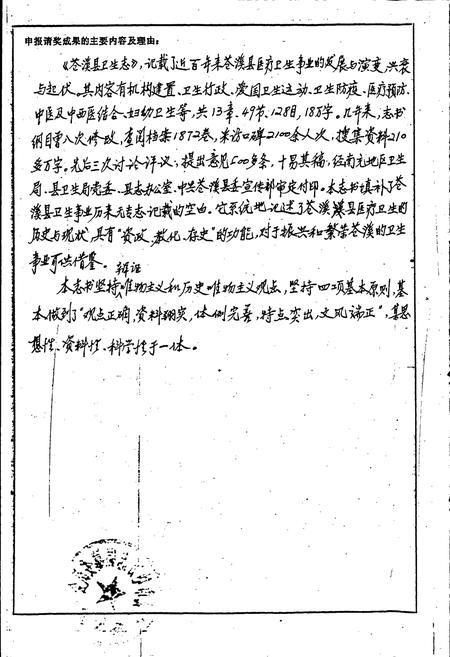 申报请奖成果的主要内容及理由：
《苍溪县卫生志》，记载了近百年来苍溪县医疗卫生事业的发展与演变、兴衰
与起伏。其内容有机构建置、卫生行政、爱国卫生运动、卫生防疫、医疗预防、
中医及中西医结合、妇幼卫生等，共13章、49节、128目，18万字。几年来，志书
纲目曾八次修改，查阅档案1872卷，采访口碑2100余人次，搜集资料210
多万字。先后三次讨论评议，提出意见600多条，十易其稿，经南充地区卫生
局、县卫生局党委、县志办公室、中共苍溪县委宣传部审定付印。本志书填补了苍
溪县卫生事业历来无专志记载的空白。它系统地记述了苍溪县医疗卫生的
历史与现状，具有"资政、教化、存史"的功能，对于振兴和繁荣苍溪的卫生
事业可供借鉴。
辩证
本志书坚持唯物主义和历史唯物主义观点，坚持四项基本原则，基
本做到了"观点正确，资料翔实，体例完善，特点突出，文风端正"，集思
想性、资料性、科学性于一体。